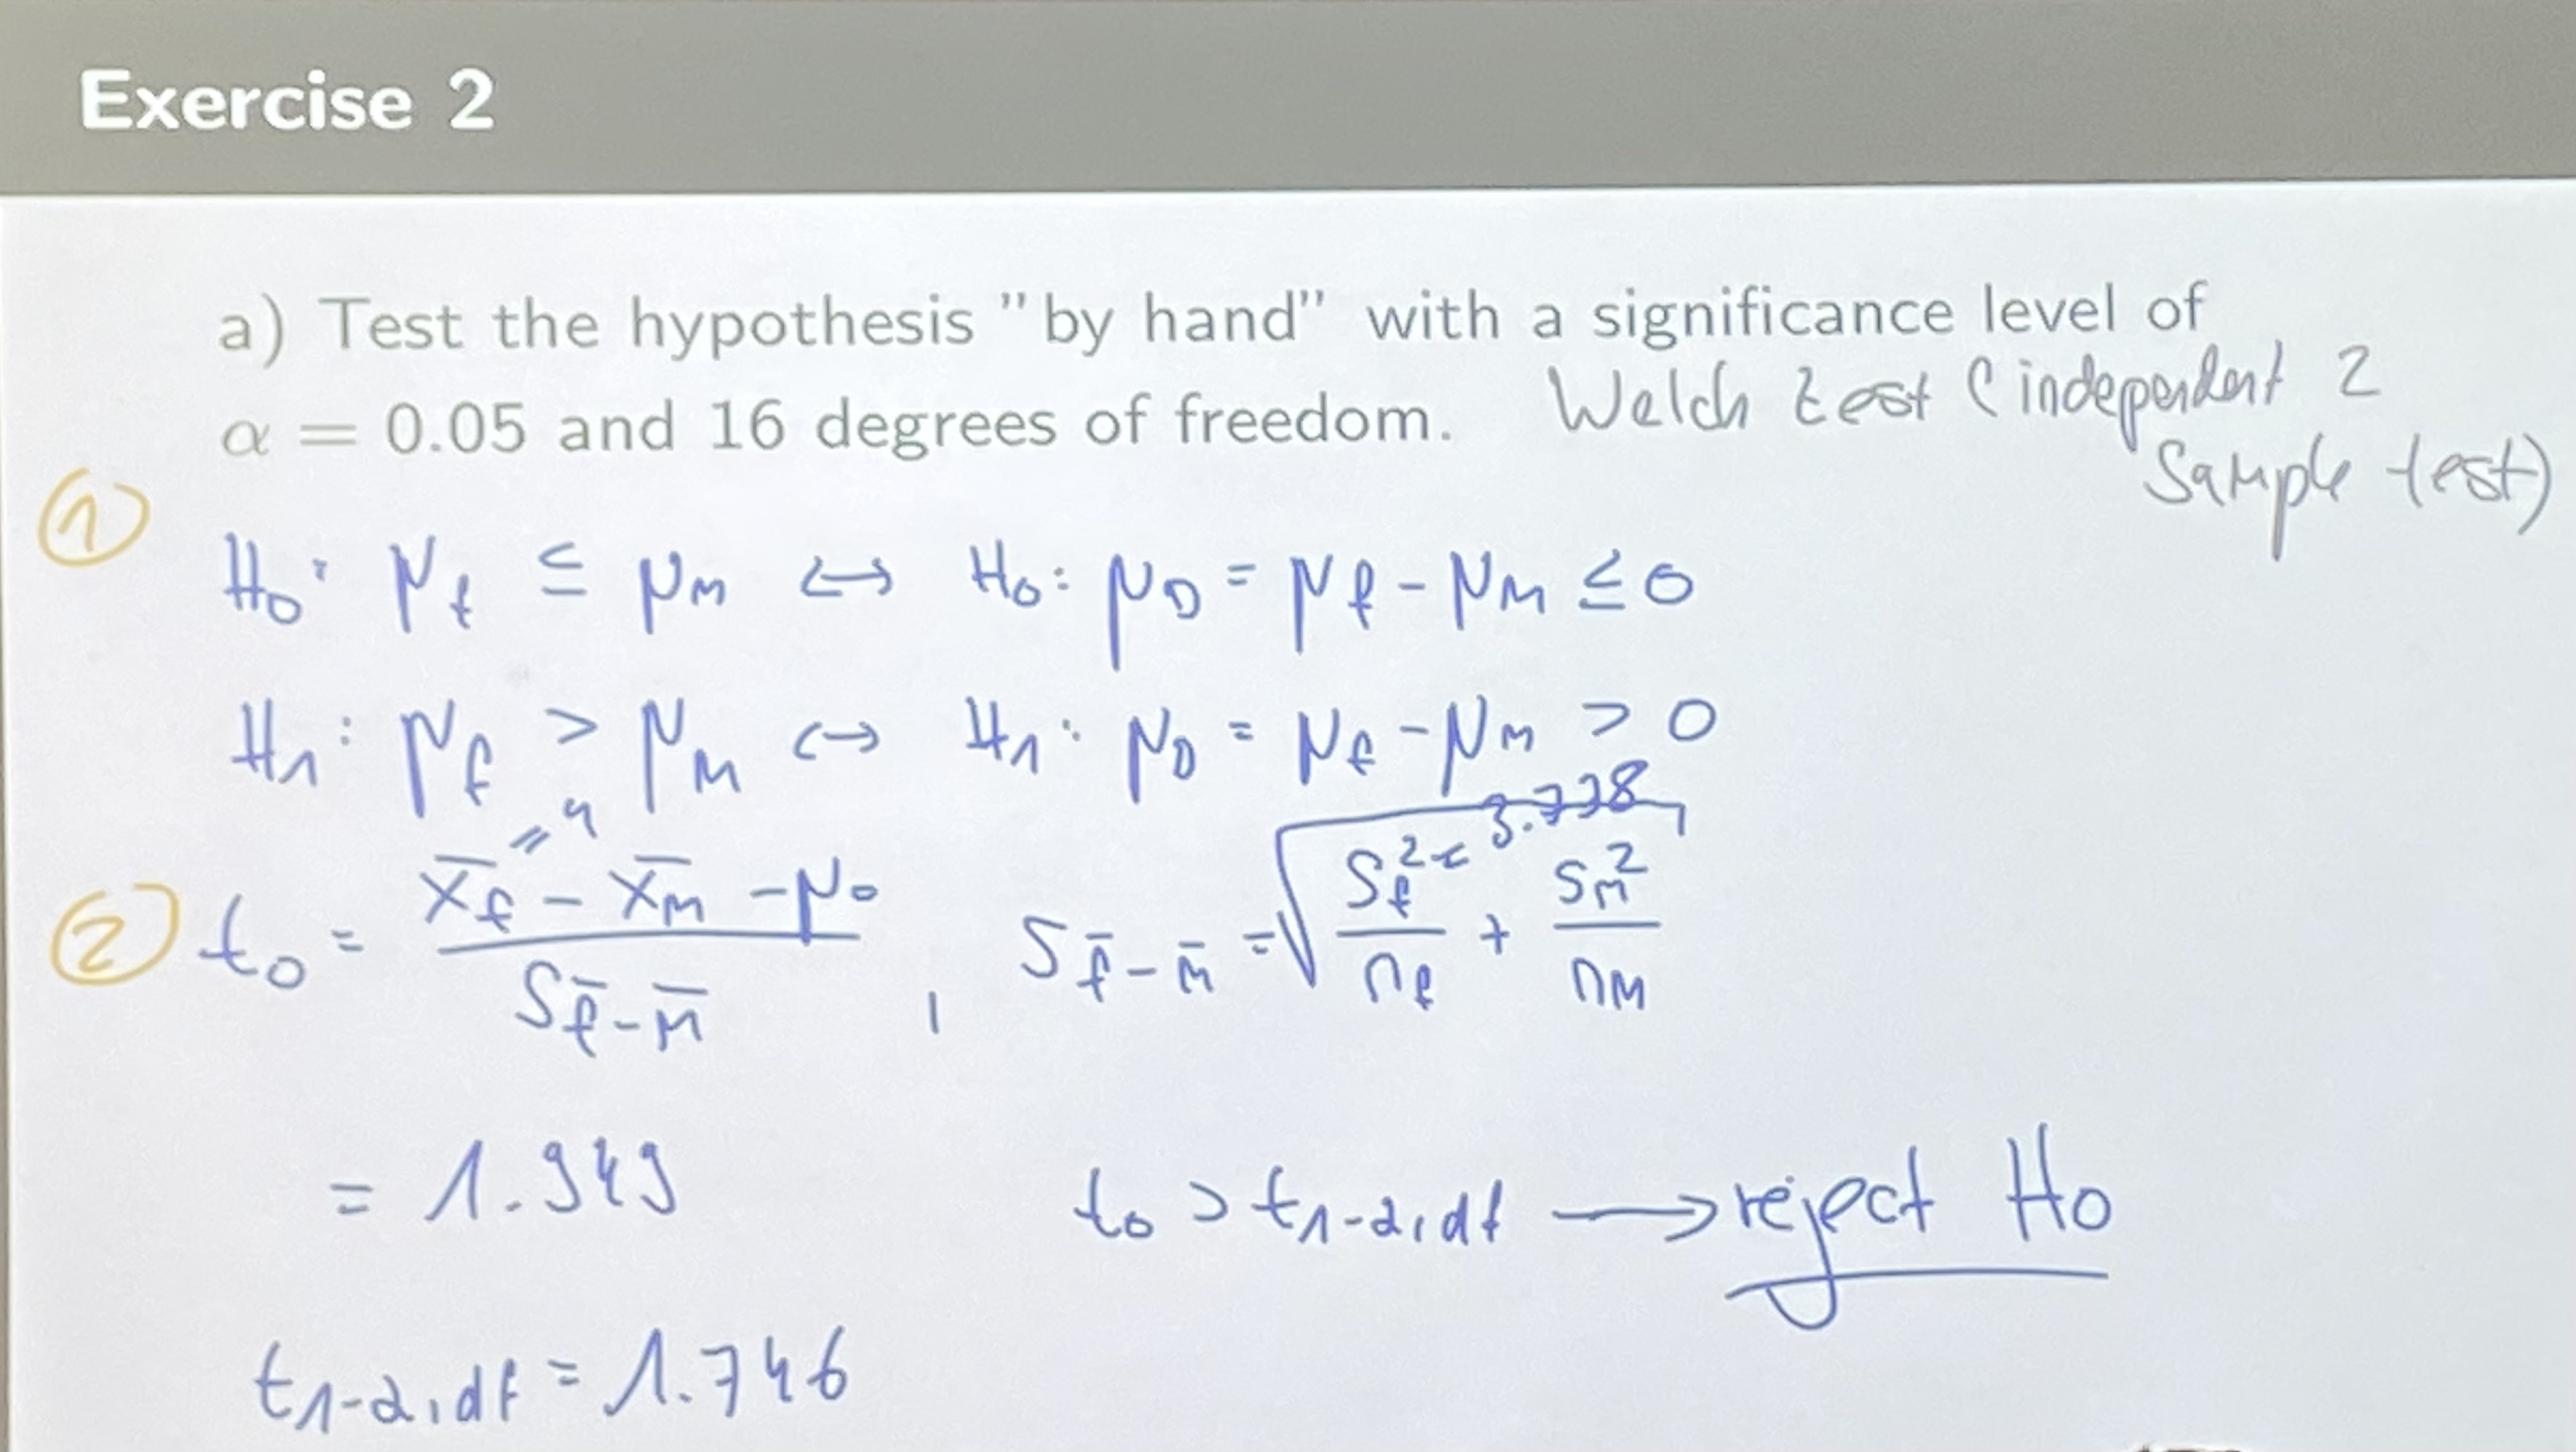 Exercise 2
a) Test the hypothesis "by hand" with a significance level of
α = 0.05 and 16 degrees of freedom.
Welch test (independent 2
Sample test)
①
H₀: μ_f ≤ μ_M ↔ H₀: μ_D = μ_f - μ_M ≤ 0
H₁: μ_f > μ_M ↔ H₁: μ_D = μ_f - μ_M > 0
② t₀ = (x̄_f - x̄_M - μ₀) / S_f̄-m̄ , S_f̄-m̄ = √(S_f²/n_f + S_M²/n_M)
3.738
= 1.949
t₀ > t_1-α,df → reject H₀
t_1-α,df = 1.746